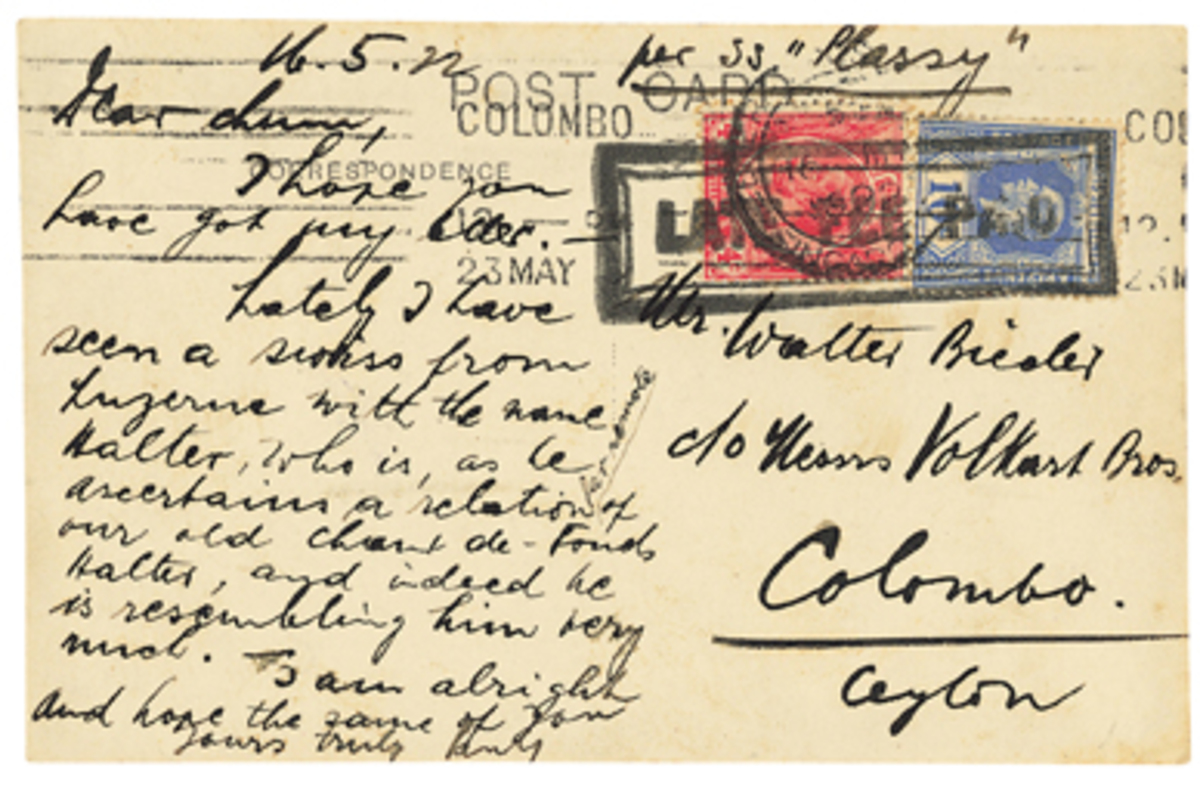 16.5.22
per ss "Plassy"
POST CARD
COLOMBO
Dear chum,
CORRESPONDENCE
I hope you
have got my letter. —
23 MAY
LATE FEE PAID
10
Lately I have
seen a swiss from
Luzerne with the name
Halter, who is, as he
ascertains a relation of
our old Chaux de-Fonds
Halter, and indeed he
is resembling him very
much.
I am alright
and hope the same of you
yours truly
Mr. Walter
c/o Messrs Volkart Bros.
Colombo.
Ceylon
COL
12.
23 M